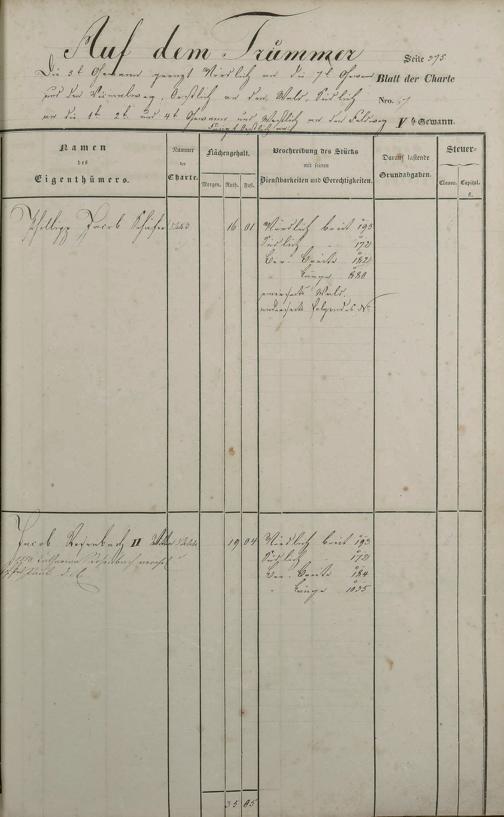 Auf dem Trümmer
Seite 375
Blatt der Charte
Nro. 57
V te Gewann.
Die 5te Gewann grenzt Nördlich an die 7te Gewann
und den Vicinalweg, Oestlich an den Wald, Südlich
an die 1te 2te und 4te Gewann und Westlich an den Feldweg
Namen
des
Eigenthümers.
Nummer
der
Charte.
Flächengehalt.
Morgen. Ruth. Fuß.
Beschreibung des Stücks
mit seinen
Dienstbarkeiten und Gerechtigkeiten.
Darauf lastende
Grundabgaben.
Steuer-
Classe. Capital.
Philipp Jacob Schäfer
16 01
Nördlich breit 193
Südlich 172
Ber. Breite 182
Länge 880
einerseits Wald
anderseits folgendes
Jacob II
19 04
Nördlich breit 193
Südlich 172
Ber. Breite 184
Länge 1035
35 05